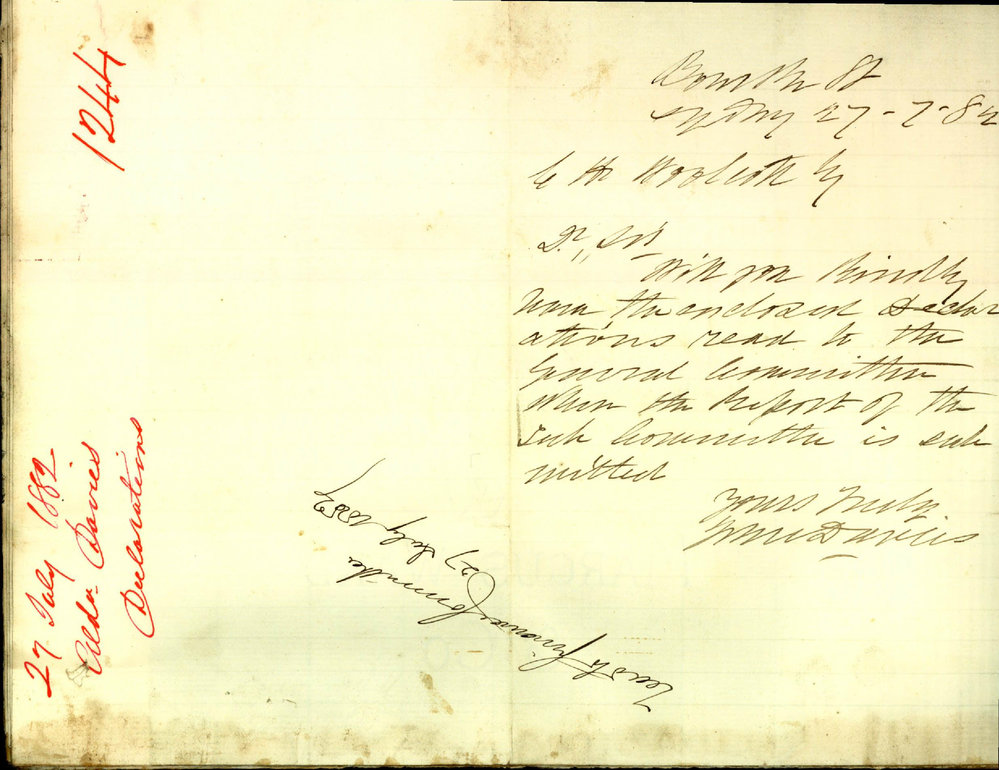 1244
27 July 1882
Alder Davies
Declarations
Sydney 27-7-82
C H Woolcott Esq
Dr, Sir
Will you Kindly
have the enclosed declar
ations read to the
General Committee
When the Report of the
Sub Committee is sub
mitted
Yours Truly
Wm Davies
Finance Committee
27 July 1882